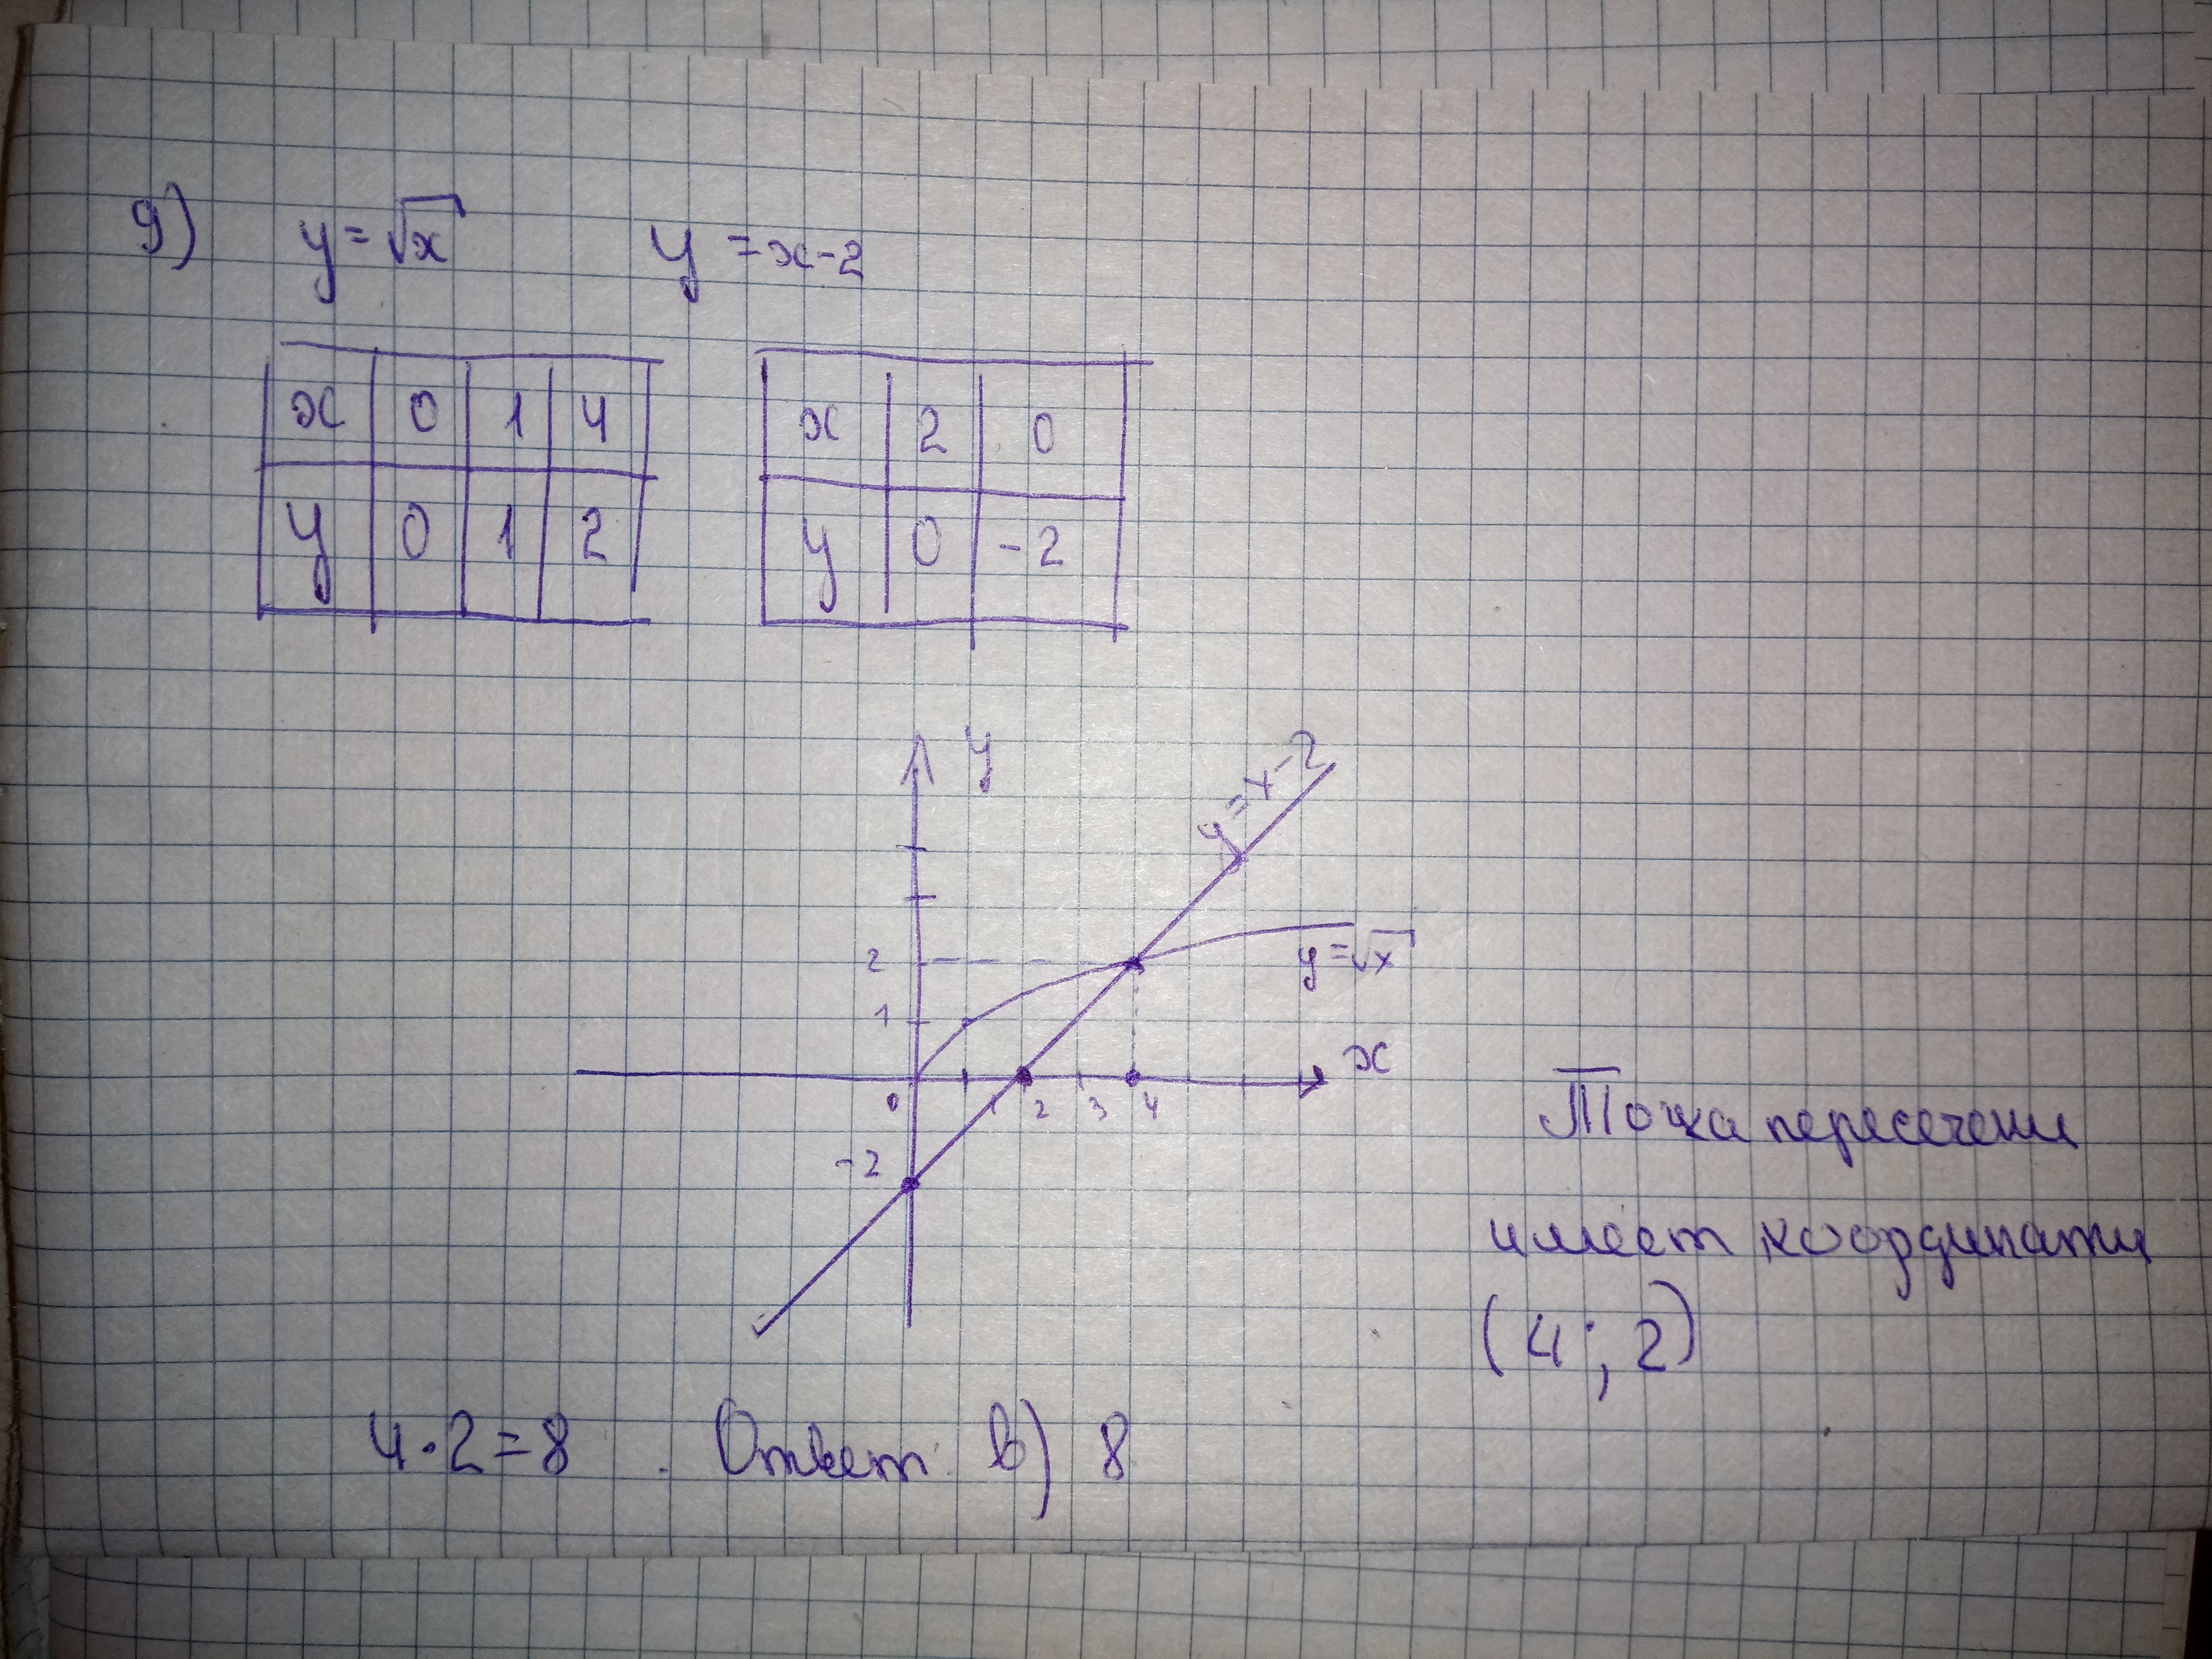 9) y = √x y = x - 2
x 0 1 4
y 0 1 2
x 2 0
y 0 -2
y
y = x - 2
2
y = √x
1
x
0 1 2 3 4
-2
Точка пересечени
имеет координаты
(4 ; 2)
4 · 2 = 8 . Ответ: в) 8